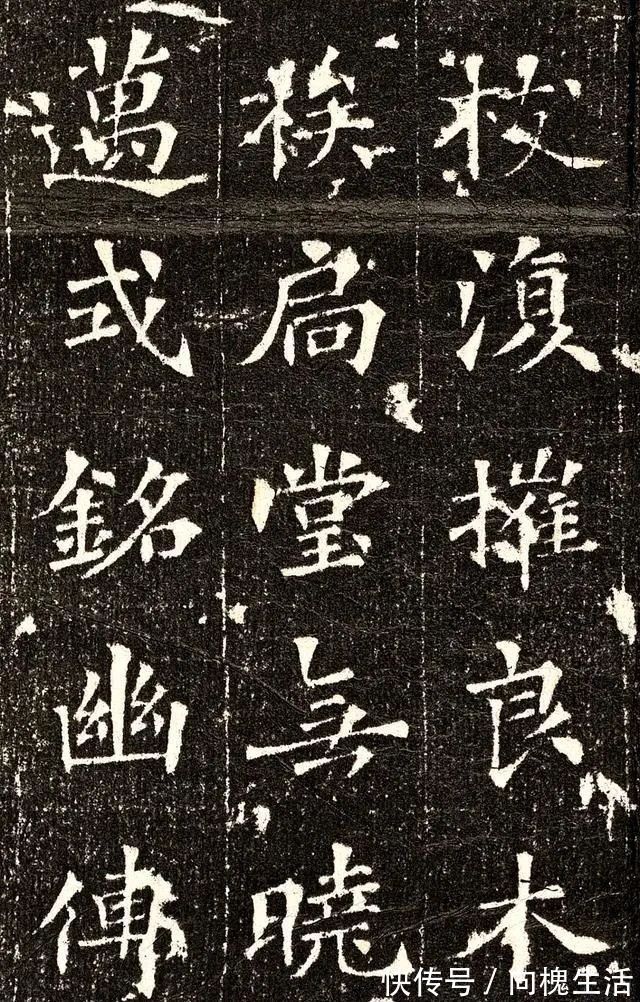 枝復摧良木
族扃堂無曉
邁式銘幽傳
快传号 / 向槐生活